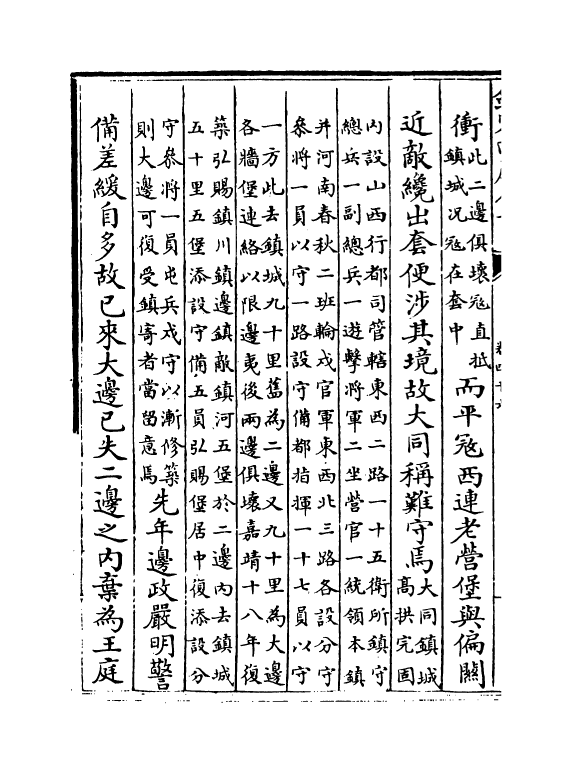 衝此二邊俱壞冦直抵鎮城況冦在套中而平冦西連老營堡與偏關
近敵纔出套便涉其境故大同稱難守焉大同鎮城高拱完固
内設山西行都司管轄東西二路一十五衛所鎮守
總兵一副總兵一遊擊將軍二坐營官一統領本鎮
并河南春秋二班輪戍官軍東西北三路各設分守
叅將一員以守一路設守備都指揮一十七員以守
一方此去鎮城九十里舊為二邊又九十里為大邊
各牆堡連絡以限邊夷後兩邊俱壞嘉靖十八年復
築弘賜鎮川鎮邊鎮敵鎮河五堡於二邊内去鎮城
五十里五堡添設守備五員弘賜堡居中復添設分
守叅將一員屯兵戍守以漸修築則大邊可復受鎮寄者當留意焉先年邊政嚴明警
備差緩自多故已來大邊已失二邊之内棄為王庭